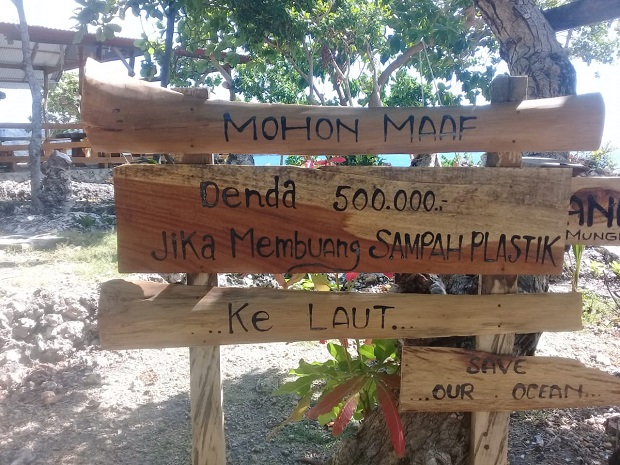 MOHON MAAF
Denda 500.000.-
JIKA Membuang SAMPAH PLASTIK
..Ke LAUT...
SAVE
...OUR OCEAN...